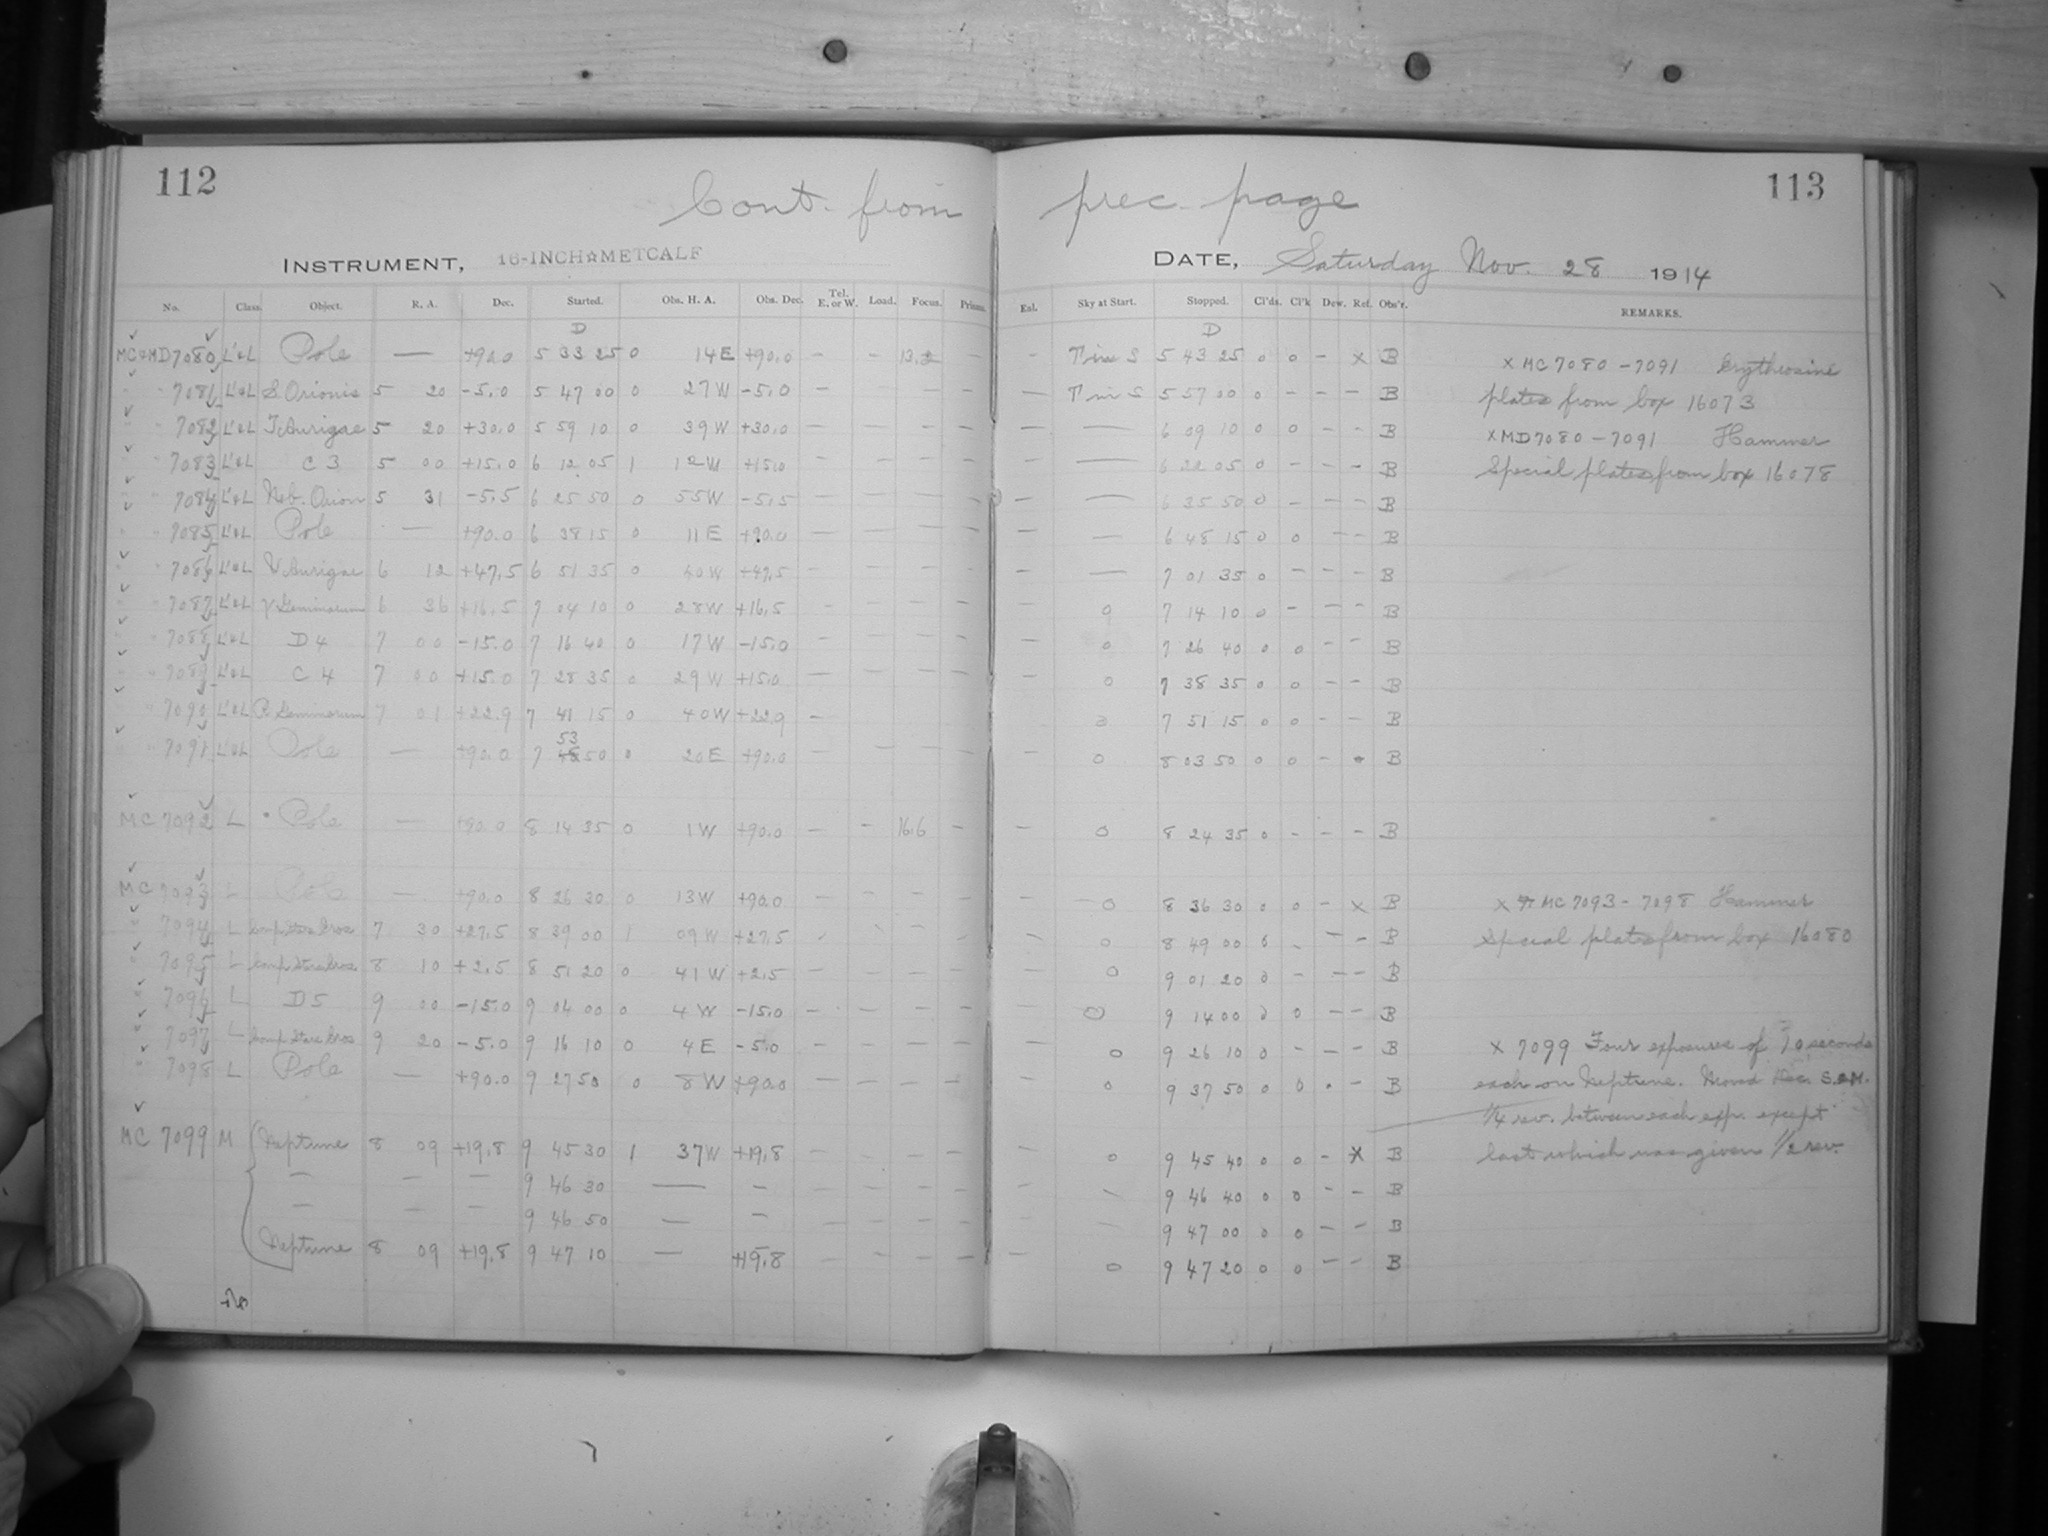 112
113
Cont. from prec. page
INSTRUMENT, 16-INCH☆METCALF
DATE, Saturday Nov. 28 1914
No. Class. Object. R. A. Dec. Started. Obs. H. A. Obs. Dec. Tel. E. or W. Load. Focus. Prisms. Enl. Sky at Start. Stopped. Cl'ds. Cl'k Dew. Ref. Obs'r. REMARKS.
D D
MC & MD 7080 L'&L Pole — +90.0 5 33 25 0 14E +90.0 - - 13.2 - - 5 43 25 0 0 - x B x MC 7080-7091 Erythrosine
" " 7081 L'&L S Orionis 5 20 -5.0 5 47 00 0 27W -5.0 - - - - - 5 57 00 0 - - - B plates from box 16073
" " 7082 L'&L T Aurigae 5 20 +30.0 5 59 10 0 39W +30.0 - - - - - — 6 09 10 0 0 - - B x MD 7080-7091 Hammer
" " 7083 L'&L C 3 5 00 +15.0 6 12 05 1 12W +15.0 - - - - - — 6 22 05 0 - - - B Special plates from box 16078
" " 7084 L'&L Neb. Orion 5 31 -5.5 6 25 50 0 55W -5.5 - - - - - — 6 35 50 0 - - - B
" " 7085 L'&L Pole — +90.0 6 38 15 0 11E +90.0 - - - - - — 6 48 15 0 0 - - B
" " 7086 L'&L V Aurigae 6 12 +47.5 6 51 35 0 40W +47.5 - - - - - — 7 01 35 0 - - - B
" " 7087 L'&L γ Geminorum 6 36 +16.5 7 04 10 0 28W +16.5 - - - - - 0 7 14 10 0 - - - B
" " 7088 L'&L D 4 7 00 -15.0 7 16 40 0 17W -15.0 - - - - - 0 7 26 40 0 0 - - B
" " 7089 L'&L C 4 7 00 +15.0 7 28 35 0 29W +15.0 - - - - - 0 7 38 35 0 0 - - B
" " 7090 L'&L R Geminorum 7 01 +22.9 7 41 15 0 40W +22.9 - 0 7 51 15 0 0 - - B
53
" " 7091 L'&L Pole — +90.0 7 50 0 20E +90.0 - - - - - 0 8 03 50 0 0 - B
MC 7092 L Pole — +90.0 8 14 35 0 1W +90.0 - - 16.6 - - 0 8 24 35 0 - - - B
MC 7093 L Pole — +90.0 8 26 30 0 13W +90.0 - - - - - 0 8 36 30 0 0 - x B x MC 7093-7098 Hammer
" 7094 L Comp Stars Eros 7 30 +27.5 8 39 00 1 09W +27.5 - - - - - 0 8 49 00 0 - - - B Special plates from box 16080
" 7095 L Comp Stars Eros 8 10 +2.5 8 51 20 0 41W +2.5 - - - - - 0 9 01 20 0 - - - B
" 7096 L D5 9 00 -15.0 9 04 00 0 4W -15.0 - - - - - 0 9 14 00 0 0 - - B
" 7097 L Comp Stars Eros 9 20 -5.0 9 16 10 0 4E -5.0 - - - - - 0 9 26 10 0 - - - B x 7099 Four exposures of 10 seconds
" 7098 L Pole — +90.0 9 27 50 0 8W +90.0 - - - - - 0 9 37 50 0 0 - - B each on Neptune. Moved Dec.
1/4 rev. between each exp. except
MC 7099 M Neptune 8 09 +19.8 9 45 30 1 37W +19.8 - - - - - 0 9 45 40 0 0 - x B last which was given 1/2 rev.
— — — 9 46 30 — — - - - - 9 46 40 0 0 - - B
— — — 9 46 50 — — - - - - 9 47 00 0 0 - - B
Neptune 8 09 +19.8 9 47 10 — +19.8 - - - - - 0 9 47 20 0 0 - - B